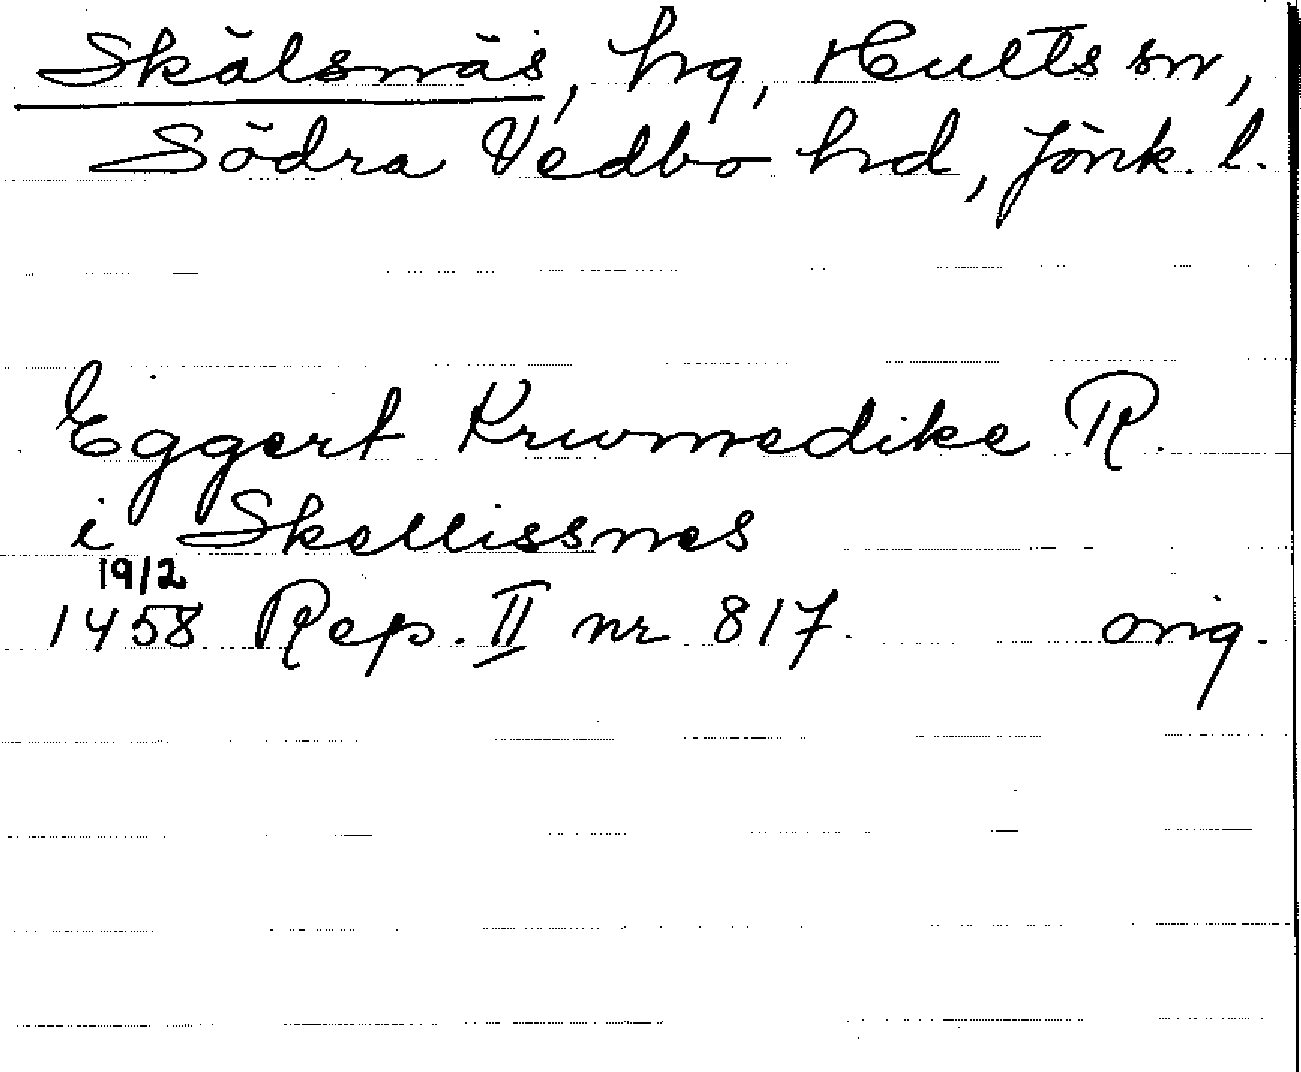 Skälsnäs, hg, Hults sn,
Södra Vedbo hd, Jönk. l.
Eggert Krumedike R.
i Skellissnes
19/2
1458 Rep. II nr 817. orig.